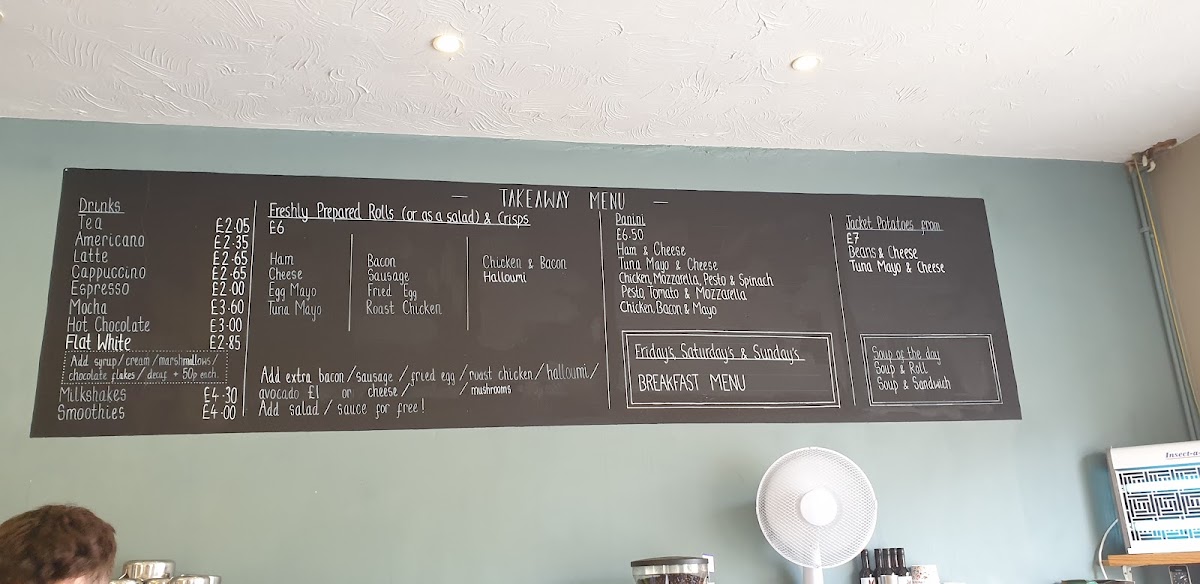 TAKEAWAY MENU
Drinks
Tea £2.05
Americano £2.35
Latte £2.65
Cappuccino £2.65
Espresso £2.00
Mocha £3.60
Hot Chocolate £3.00
Flat White £2.85
Add syrup/cream/marshmallows/
chocolate flakes/decaf + 50p each.
Milkshakes £4.30
Smoothies £4.00
Freshly Prepared Rolls (or as a salad) & Crisps
£6
Ham
Cheese
Egg Mayo
Tuna Mayo
Bacon
Sausage
Fried Egg
Roast Chicken
Chicken & Bacon
Halloumi
Add extra bacon/sausage/fried egg/roast chicken/halloumi/
avocado £1 or cheese/ /mushrooms
Add salad/sauce for free!
Panini
£6.50
Ham & Cheese
Tuna Mayo & Cheese
Chicken, Mozzarella, Pesto & Spinach
Pesto, Tomato & Mozzarella
Chicken, Bacon & Mayo
Friday's, Saturday's & Sunday's
BREAKFAST MENU
Jacket Potatoes from
£7
Beans & Cheese
Tuna Mayo & Cheese
Soup of the day
Soup & Roll
Soup & Sandwich
Insect-a-